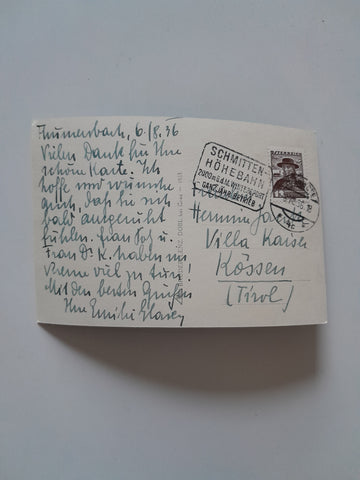 Thumersbach, 6./8. 36
Vielen Dank für Ihre
schöne Karte. Ich
hoffe und wünsche
auch, daß Sie sich
bald ausgeruht
fühlen. Frau Sch. u.
Frau Dr. K. haben im
viel zu tun!
Mit den besten Grüßen
Ihre Emilie
SCHMITTEN-
HÖHEBAHN
2000 m ü.d.M.
GANZJÄHR. BETRIEB
ÖSTERREICH
Hermine
Villa Kaiser
Kössen
(Tirol)